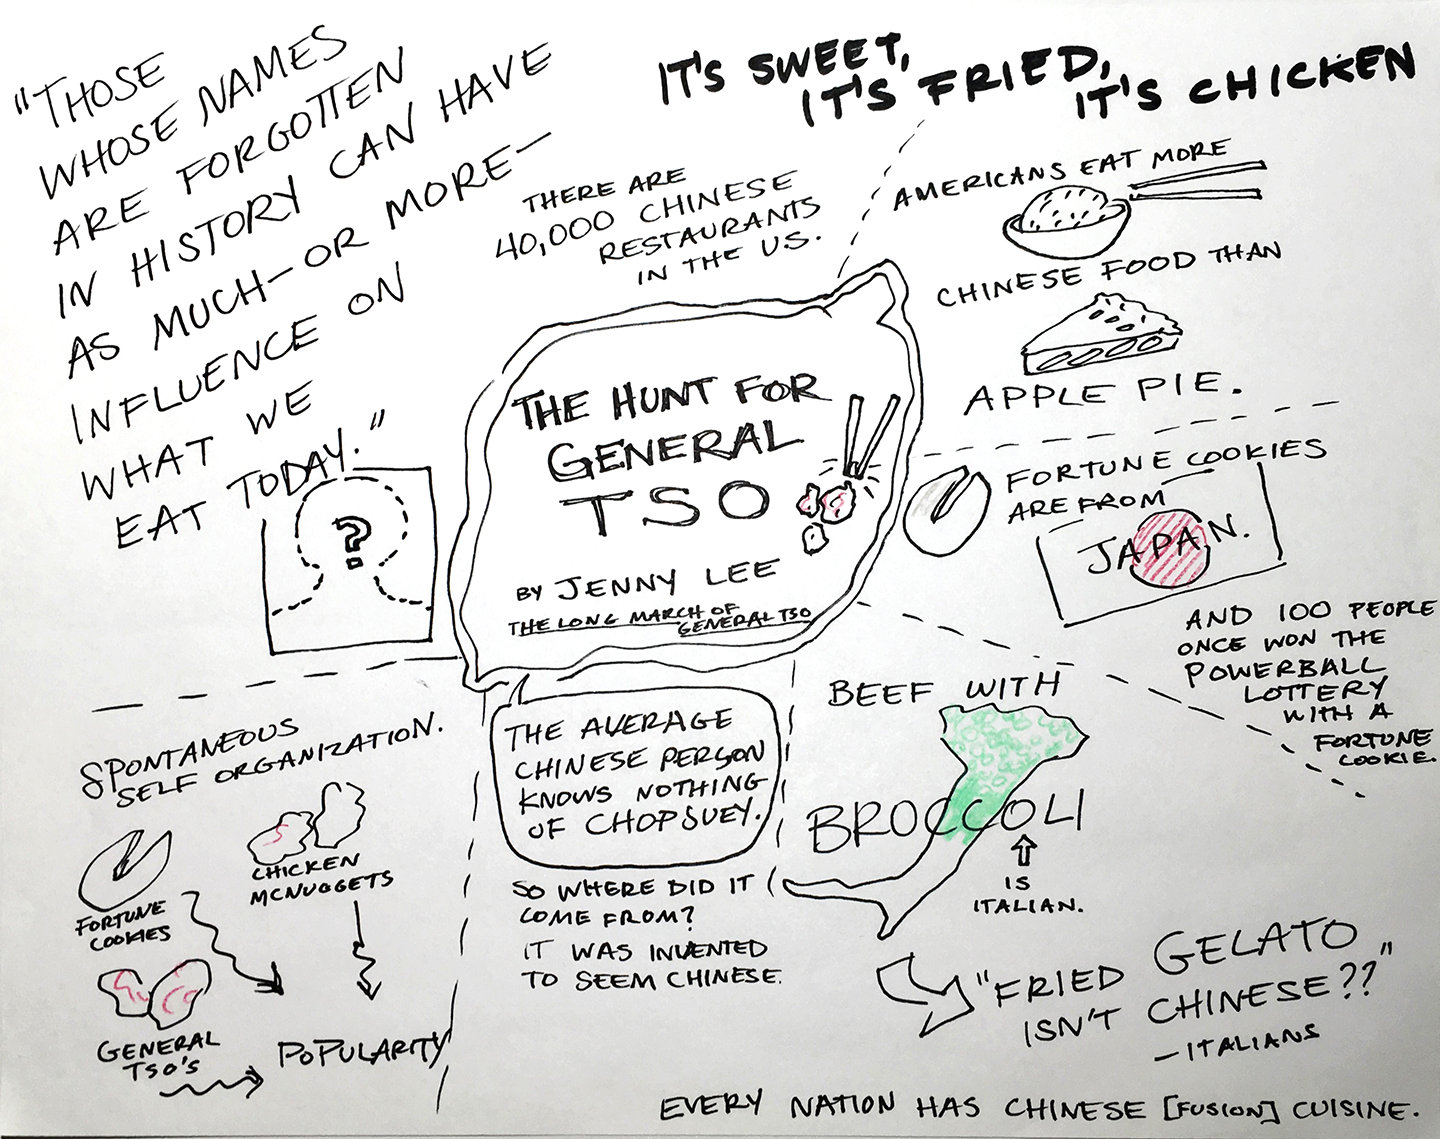 "THOSE
WHOSE NAMES
ARE FORGOTTEN
IN HISTORY CAN HAVE
AS MUCH—OR MORE—
INFLUENCE ON
WHAT WE
EAT TODAY."
?
IT'S SWEET,
IT'S FRIED,
IT'S CHICKEN
THERE ARE
40,000 CHINESE
RESTAURANTS
IN THE U.S.
AMERICANS EAT MORE
CHINESE FOOD THAN
APPLE PIE.
THE HUNT FOR
GENERAL
TSO
BY JENNY LEE
THE LONG MARCH OF
GENERAL TSO
FORTUNE COOKIES
ARE FROM
JAPAN.
AND 100 PEOPLE
ONCE WON THE
POWERBALL
LOTTERY
WITH A
FORTUNE
COOKIE.
SPONTANEOUS
SELF ORGANIZATION.
FORTUNE
COOKIES
CHICKEN
MCNUGGETS
GENERAL
TSO'S
POPULARITY
THE AVERAGE
CHINESE PERSON
KNOWS NOTHING
OF CHOPSUEY.
SO WHERE DID IT
COME FROM?
IT WAS INVENTED
TO SEEM CHINESE.
BEEF WITH
BROCCOLI
IS
ITALIAN.
"FRIED GELATO
ISN'T CHINESE??"
—ITALIANS
EVERY NATION HAS CHINESE [FUSION] CUISINE.